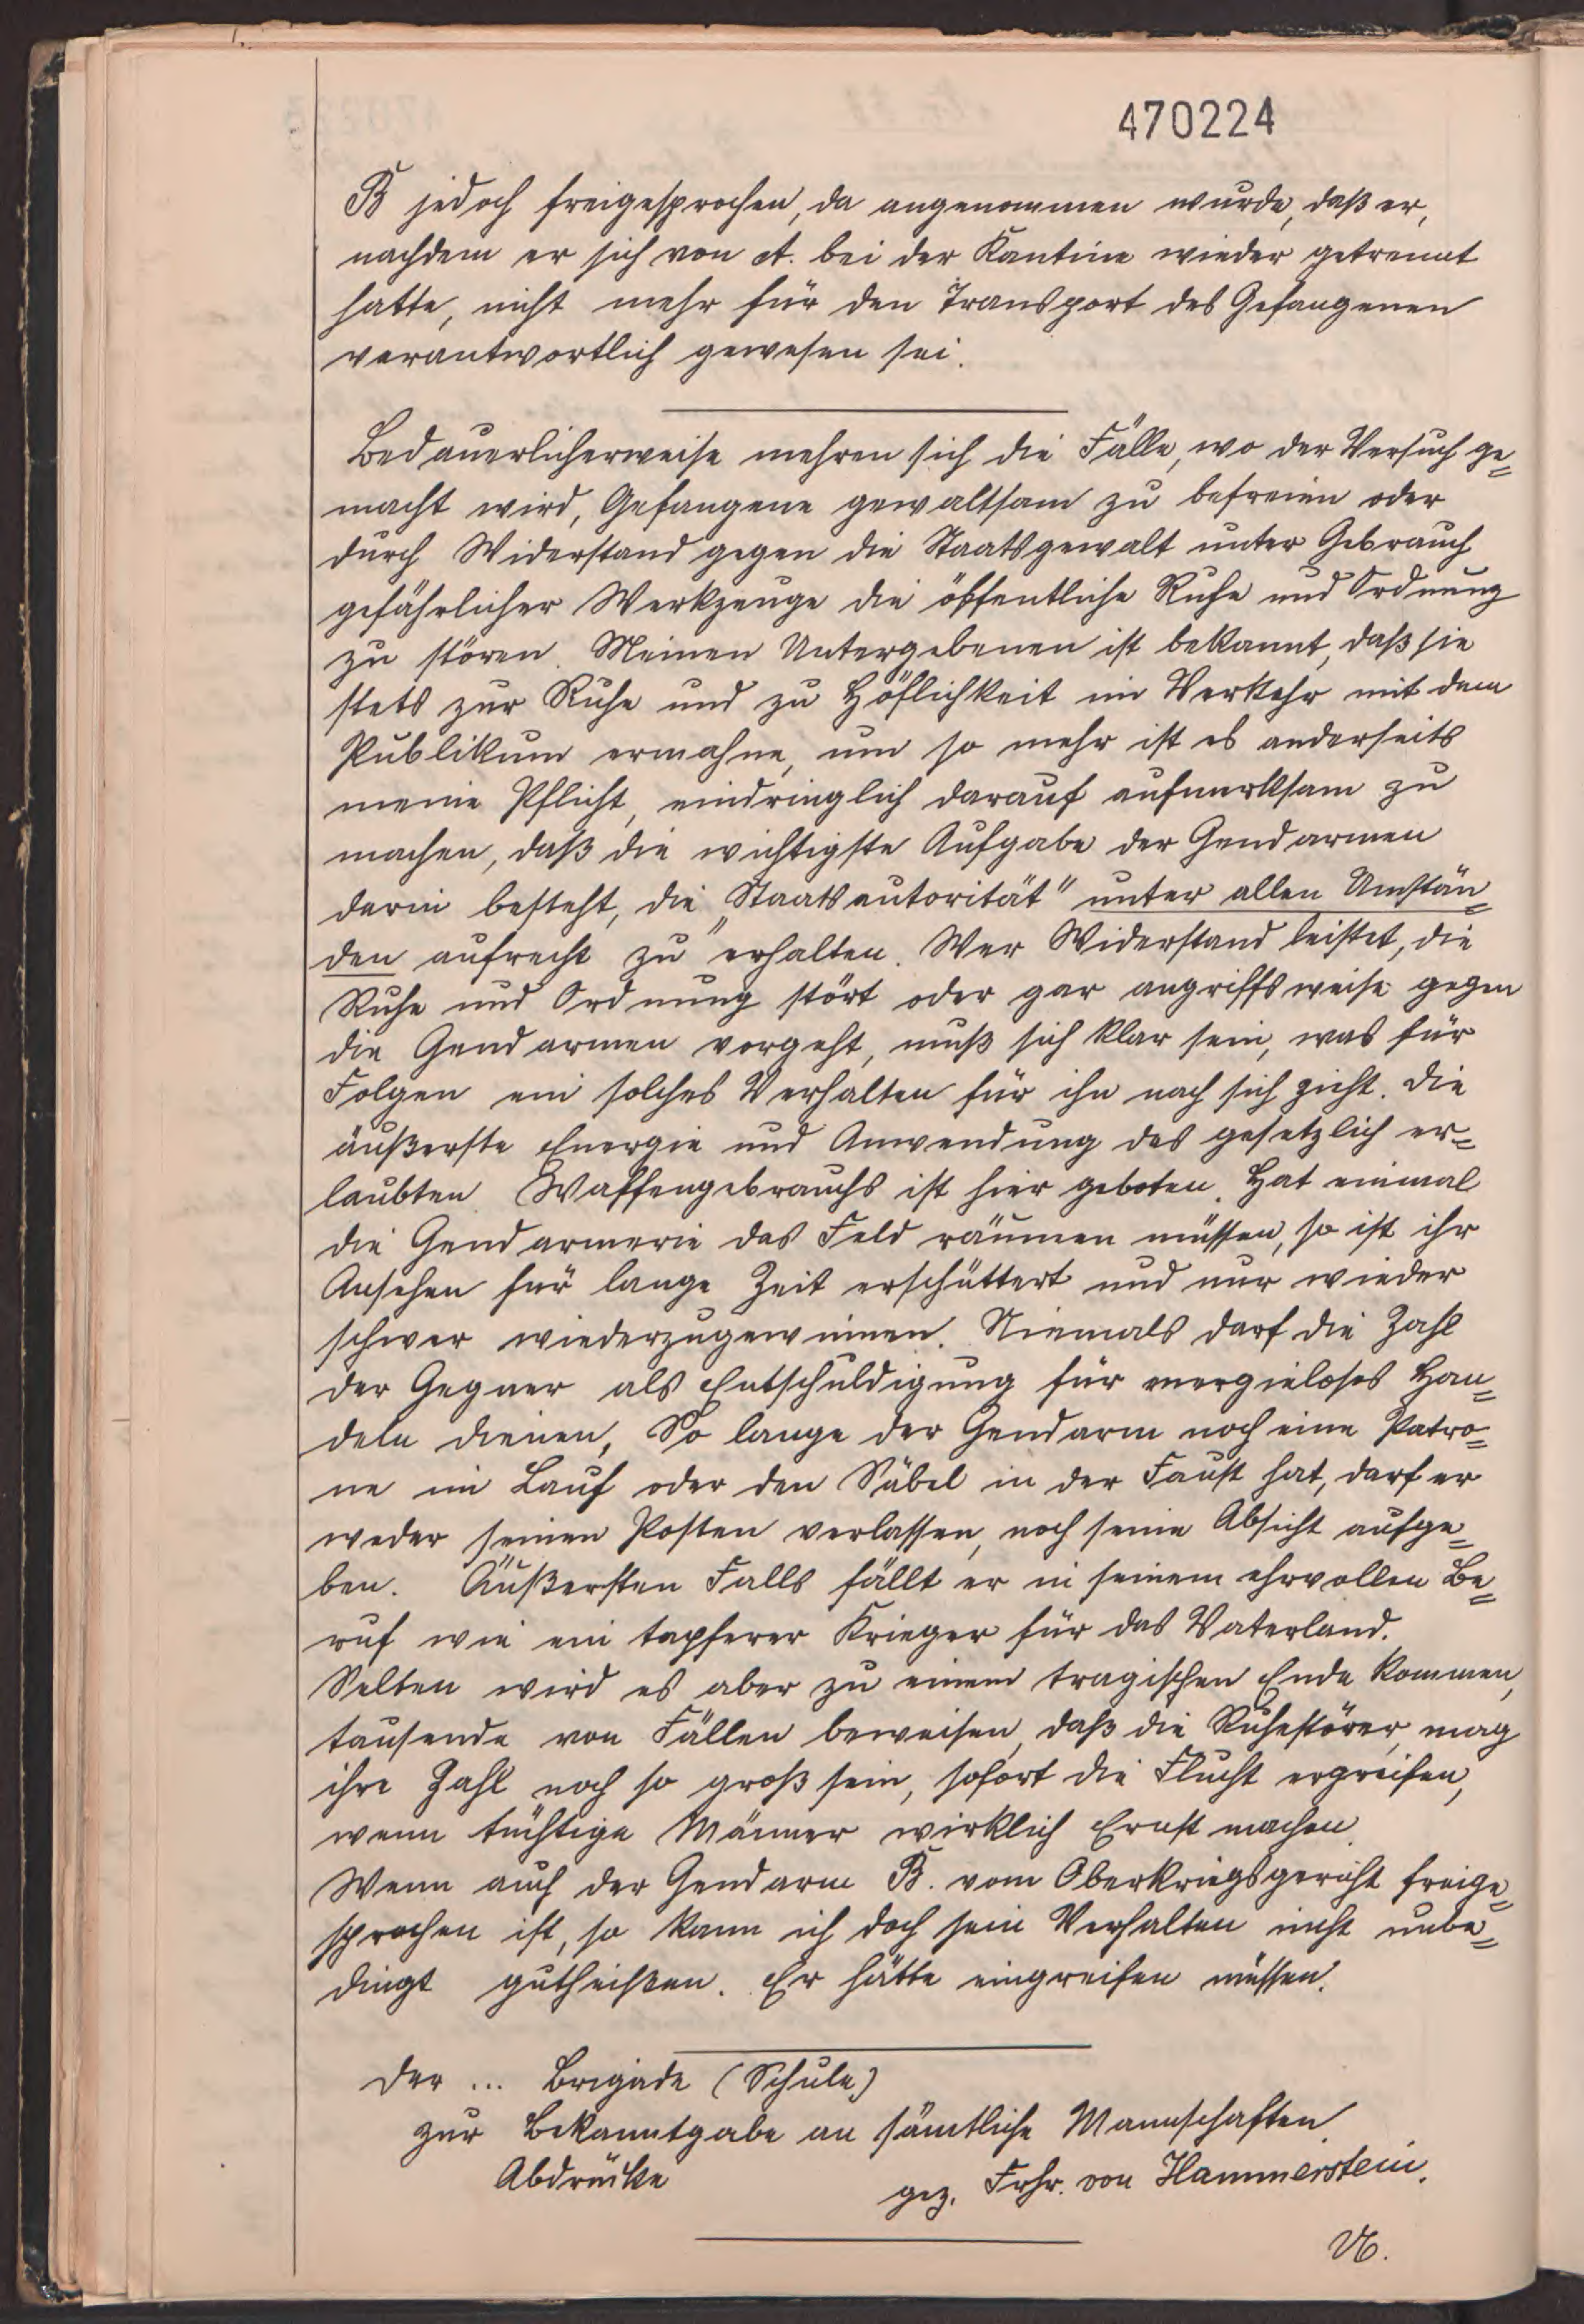 470224
B jedoch freigesprochen, da angenommen wurde, daß er,
nachdem er sich von A. bei der Kantine wieder getrennt
hatte, nicht mehr für den Transport des Gefangenen
verantwortlich gewesen sei.
Bedauerlicherweise mehren sich die Fälle, wo der Versuch ge=
macht wird, Gefangene gewaltsam zu befreien oder
durch Widerstand gegen die Staatsgewalt unter Gebrauch
gefährlicher Werkzeuge die öffentliche Ruhe und Ordnung
zu stören. Meinen Untergebenen ist bekannt, daß sie
stets zur Ruhe und zu Höflichkeit im Verkehr mit dem
Publikum ermahne, um so mehr ist es anderseits
meine Pflicht, eindringlich darauf aufmerksam zu
machen, daß die wichtigste Aufgabe der Gendarmen
darin besteht, die „Staatsautorität" unter allen Umstän=
den aufrecht zu erhalten. Wer Widerstand leistet, die
Ruhe und Ordnung stört oder gar angriffsweise gegen
die Gendarmen vorgeht, muß sich klar sein, was für
Folgen ein solches Verhalten für ihn nach sich zieht. Die
äußerste Energie und Anwendung des gesetzlich er=
laubten Waffengebrauchs ist hier geboten. Hat einmal
die Gendarmerie das Feld räumen müssen, so ist ihr
Ansehen für lange Zeit erschüttert und nur wieder
schwer wiederzugewinnen. Niemals darf die Zahl
der Gegner als Entschuldigung für energieloses Han=
deln dienen, So lange der Gendarm noch eine Patro=
ne im Lauf oder den Säbel in der Faust hat, darf er
weder seinen Posten verlassen, noch seine Absicht aufge=
ben. Äußersten Falls fällt er in seinem ehrvollen Be=
ruf wie ein tapferer Krieger für das Vaterland.
Selten wird es aber zu einem tragischen Ende kommen,
tausende von Fällen beweisen, daß die Ruhestörer, mag
ihre Zahl noch so groß sein, sofort die Flucht ergreifen,
wenn tüchtige Männer wirklich Ernst machen.
Wenn auch der Gendarm B. vom Oberkriegsgericht freige=
sprochen ist, so kann ich doch sein Verhalten nicht unbe=
dingt gutheißen. Er hätte eingreifen müssen.
Der ... Brigade (Schule)
zur Bekanntgabe an sämtliche Mannschaften.
Abdrücke
gez. Frhr. von Hammerstein.